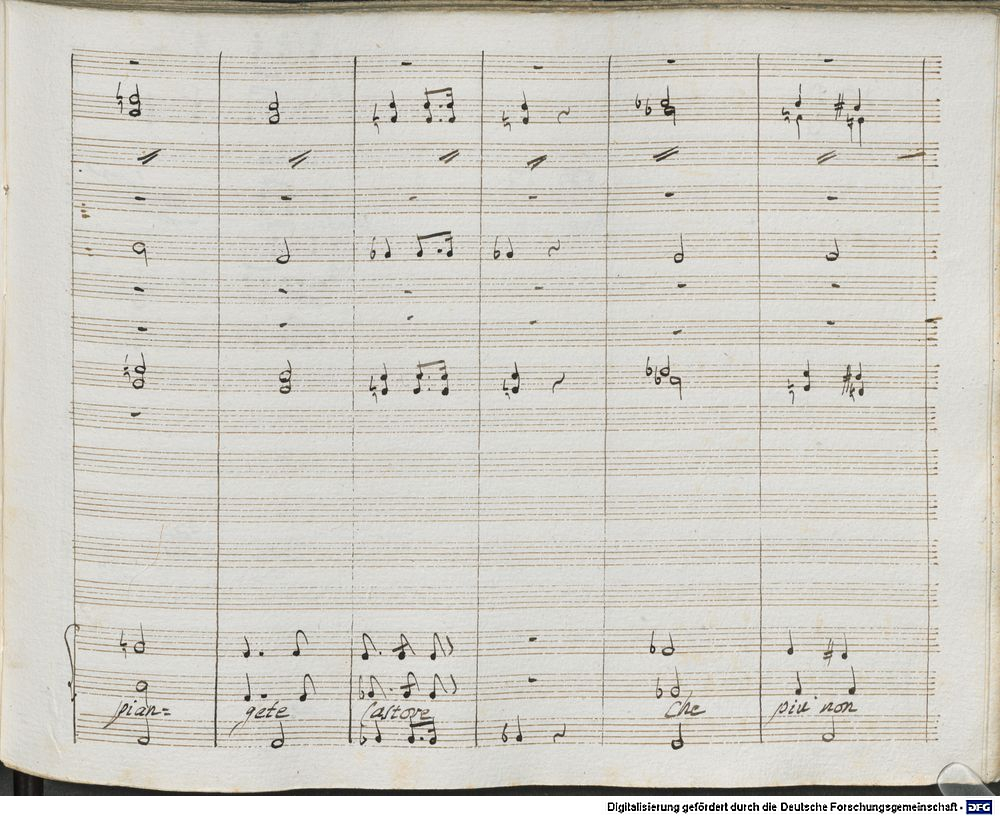 pian= gete Castore Che piu non
Digitalisierung gefördert durch die Deutsche Forschungsgemeinschaft - DFG